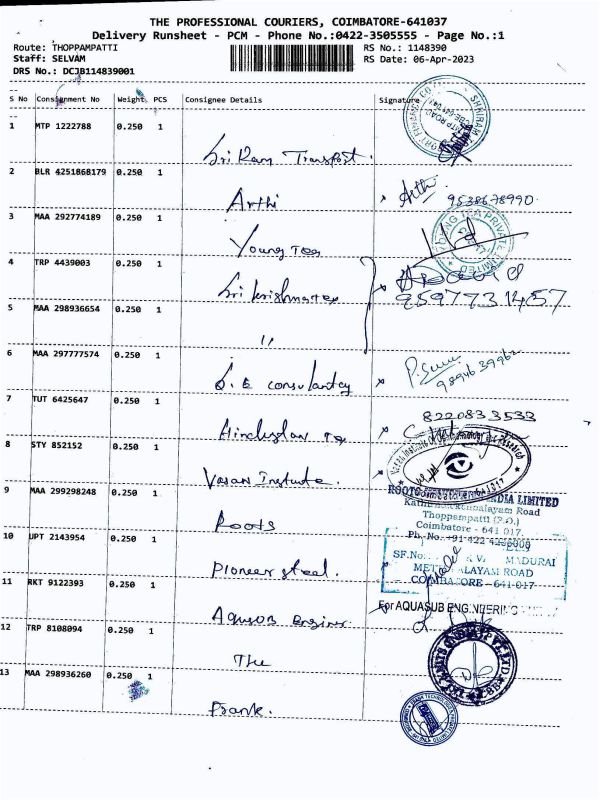 THE PROFESSIONAL COURIERS, COIMBATORE-641037
Delivery Runsheet - PCM - Phone No.:0422-3505555 - Page No.:1
Route: THOPPAMPATTI
RS No.: 1148390
Staff: SELVAM
RS Date: 06-Apr-2023
DRS No.: DCJB114839001
S No Consignment No Weight PCS Consignee Details Signature
1 MTP 1222788 0.250 1
Sri Ram Transport.
2 BLR 4251868179 0.250 1
Arthi Arthi 9538678990
3 MAA 292774189 0.250 1
Young Tex
YOUNG TEX PRIVATE LIMITED
4 TRP 4439003 0.250 1
Sri Krishna Tex
9597731457
5 MAA 298936654 0.250 1
"
6 MAA 297777574 0.250 1
S.E consultancy
7 TUT 6425647 0.250 1
8220833533
Hindustan Tex
8 STY 852152 0.250 1
Vasan Institute.
9 MAA 299298248 0.250 1
Roots
ROOTS INDIA LIMITED
Thoppampatti (P.O.)
Coimbatore - 641 017.
10 UPT 2143954 0.250 1
Pioneer steel.
SF.No: MADURAI
ALAYAM ROAD
COIMBATORE - 641 017
11 RKT 9122393 0.250 1
Aquasub Engineer
For AQUASUB ENGINEERING
12 TRP 8108094 0.250 1
The
13 MAA 298936260 0.250 1
Frank.